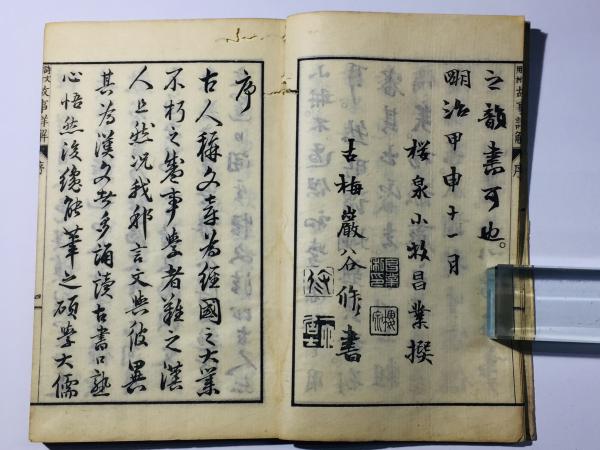 之韻書可也。
明治甲申十一月
桜泉小牧昌業撰
古梅巖谷修書
序
古人稱文章為經國之大業
不朽之盛事學者難之漢
人且然況我邦言文與彼異
其為漢文者多誦讀古書口熟
心悟然後能筆之碩學大儒
故事詳解
序
四